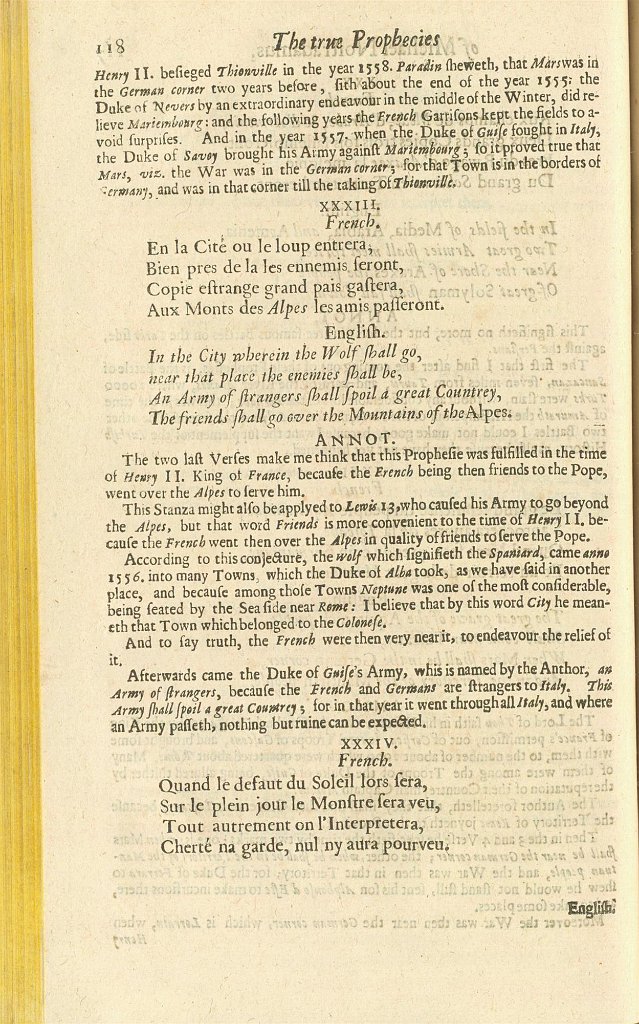 118 The true Prophecies
Henry II. besieged Thionville in the year 1558. Paradin sheweth, that Mars was in
the German corner two years before, sith about the end of the year 1555: the
Duke of Nevers by an extraordinary endeavour in the middle of the Winter, did re-
lieve Mariembourg: and the following years the French Garrisons kept the fields to a-
void surprises. And in the year 1557. when the Duke of Guise fought in Italy,
the Duke of Savoy brought his Army against Mariembourg; so it proved true that
Mars, viz. the War was in the German corner; for that Town is in the borders of
Germany, and was in that corner till the taking of Thionville.
XXXIII.
French.
En la Cité ou le loup entrera,
Bien pres de la les ennemis seront,
Copie estrange grand pais gastera,
Aux Monts des Alpes les amis passeront.
English.
In the City wherein the Wolf shall go,
near that place the enemies shall be,
An Army of strangers shall spoil a great Countrey,
The friends shall go over the Mountains of the Alpes.
ANNOT.
The two last Verses make me think that this Prophesie was fulfilled in the time
of Henry II. King of France, because the French being then friends to the Pope,
went over the Alpes to serve him.
This Stanza might also be applyed to Lewis 13, who caused his Army to go beyond
the Alpes, but that word Friends is more convenient to the time of Henry II. be-
cause the French went then over the Alpes in quality of friends to serve the Pope.
According to this conjecture, the wolf which signifieth the Spaniard, came anno
1556. into many Towns, which the Duke of Alba took, as we have said in another
place, and because among those Towns Neptune was one of the most considerable,
being seated by the Sea side near Rome: I believe that by this word City he mean-
eth that Town which belonged to the Colonese.
And to say truth, the French were then very near it, to endeavour the relief of
it.
Afterwards came the Duke of Guise's Army, whis is named by the Anthor, an
Army of strangers, because the French and Germans are strangers to Italy. This
Army shall spoil a great Countrey; for in that year it went through all Italy, and where
an Army passeth, nothing but ruine can be expected.
XXXIV.
French.
Quand le defaut du Soleil lors sera,
Sur le plein jour le Monstre sera veu,
Tout autrement on l'Interpretera,
Cherté na garde, nul ny aura pourveu.
English.